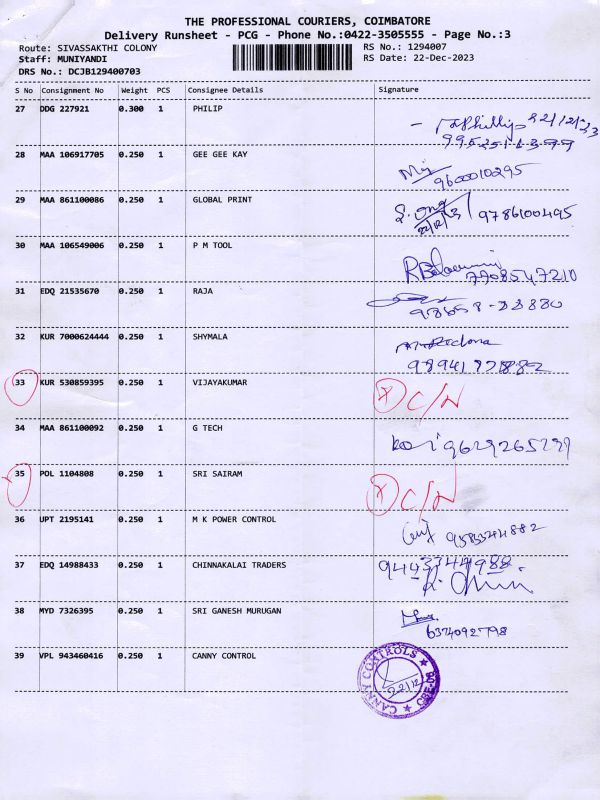 THE PROFESSIONAL COURIERS, COIMBATORE
Delivery Runsheet - PCG - Phone No.:0422-3505555 - Page No.:3
Route: SIVASSAKTHI COLONY RS No.: 1294007
Staff: MUNIYANDI RS Date: 22-Dec-2023
DRS No.: DCJB129400703
S No Consignment No Weight PCS Consignee Details Signature
27 DDG 227921 0.300 1 PHILIP
22/12/23
28 MAA 106917705 0.250 1 GEE GEE KAY
9600010295
29 MAA 861100086 0.250 1 GLOBAL PRINT
22/12/23 9786100495
30 MAA 106549006 0.250 1 P M TOOL
7708547210
31 EDQ 21535670 0.250 1 RAJA
98658-33880
32 KUR 7000624444 0.250 1 SHYMALA
33 KUR 530859395 0.250 1 VIJAYAKUMAR C/N
34 MAA 861100092 0.250 1 G TECH
35 POL 1104808 0.250 1 SRI SAIRAM C/N
36 UPT 2195141 0.250 1 M K POWER CONTROL
37 EDQ 14988433 0.250 1 CHINNAKALAI TRADERS
38 MYD 7326395 0.250 1 SRI GANESH MURUGAN
6374092798
39 VPL 943460416 0.250 1 CANNY CONTROL
CANNY CONTROLS
22/12